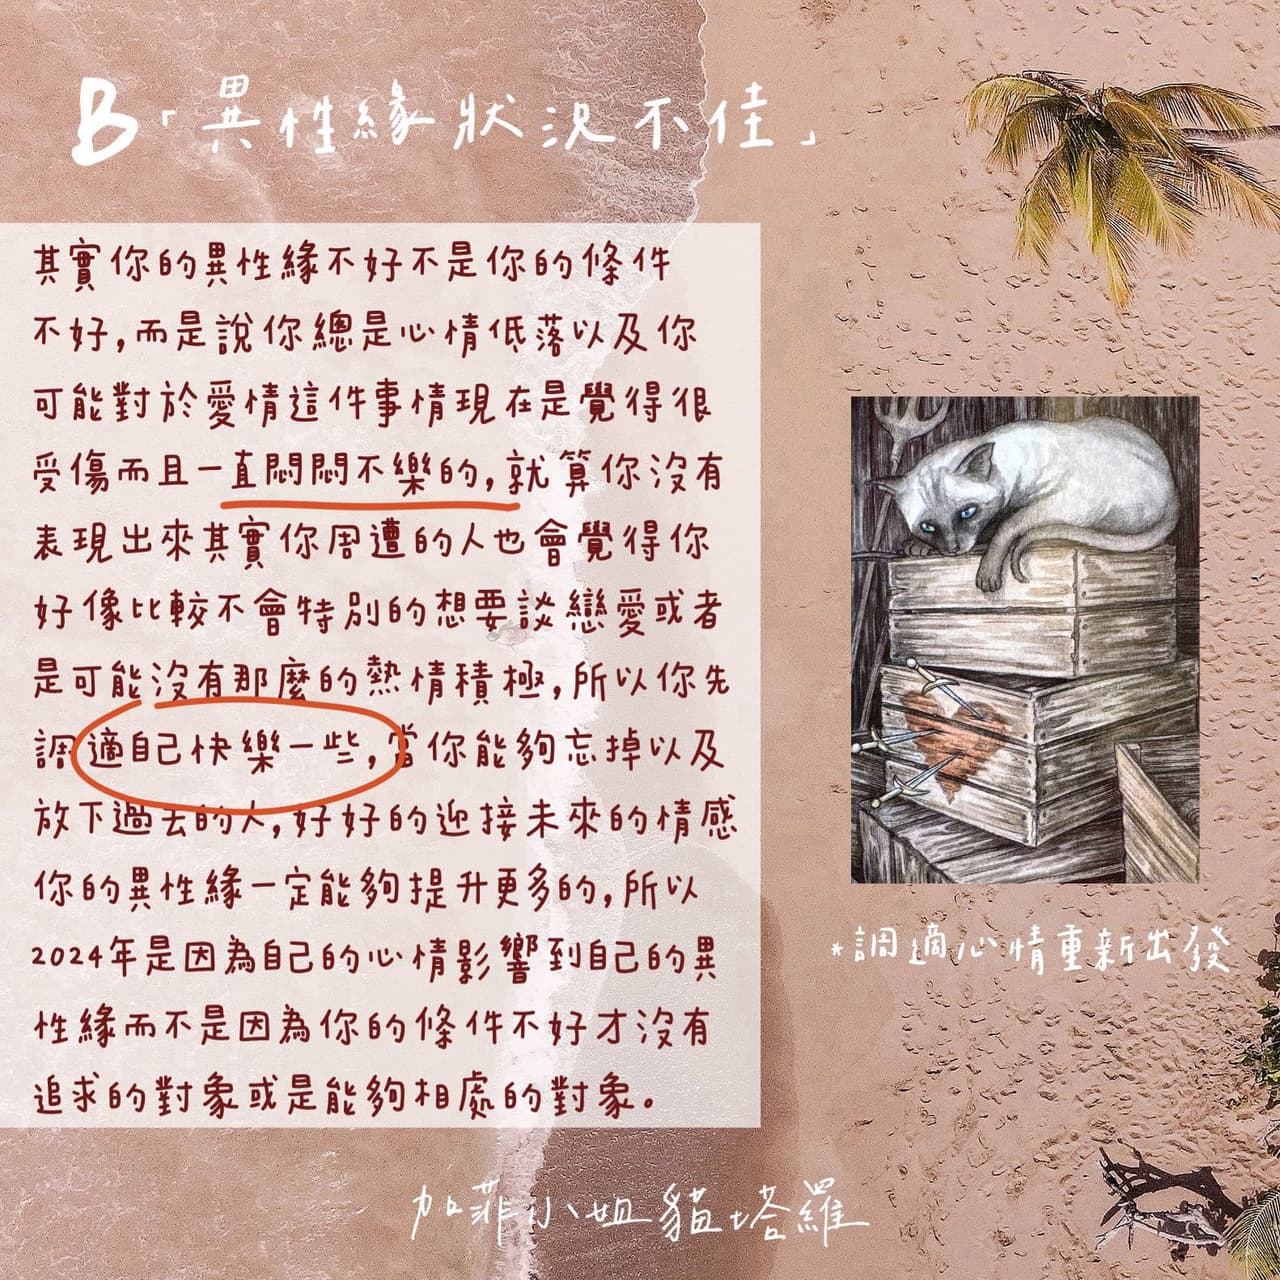 B「異性緣狀況不佳」
其實你的異性緣不好不是你的條件
不好,而是說你總是心情低落以及你
可能對於愛情這件事情現在是覺得很
受傷而且一直悶悶不樂的,就算你沒有
表現出來其實你周遭的人也會覺得你
好像比較不會特別的想要談戀愛或者
是可能沒有那麼的熱情積極,所以你先
調適自己快樂一些,當你能夠忘掉以及
放下過去的人,好好的迎接未來的情感
你的異性緣一定能夠提升更多的,所以
2024年是因為自己的心情影響到自己的異
性緣而不是因為你的條件不好才沒有
追求的對象或是能夠相處的對象。
*調適心情重新出發
加菲小姐貓塔羅